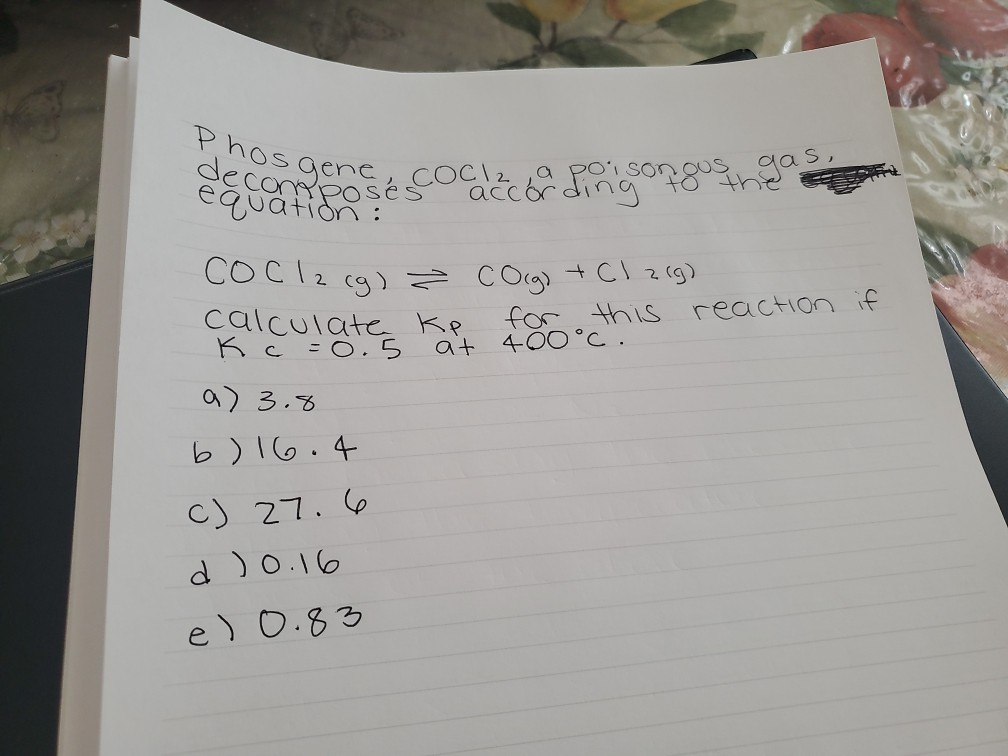 Phosgene, COCl2, a poisonous gas,
decomposes according to the
equation:
COCl2 (g) ⇌ CO(g) + Cl2(g)
calculate Kp for this reaction if
Kc = 0.5 at 400°C.
a) 3.8
b) 16.4
c) 27.6
d) 0.16
e) 0.83